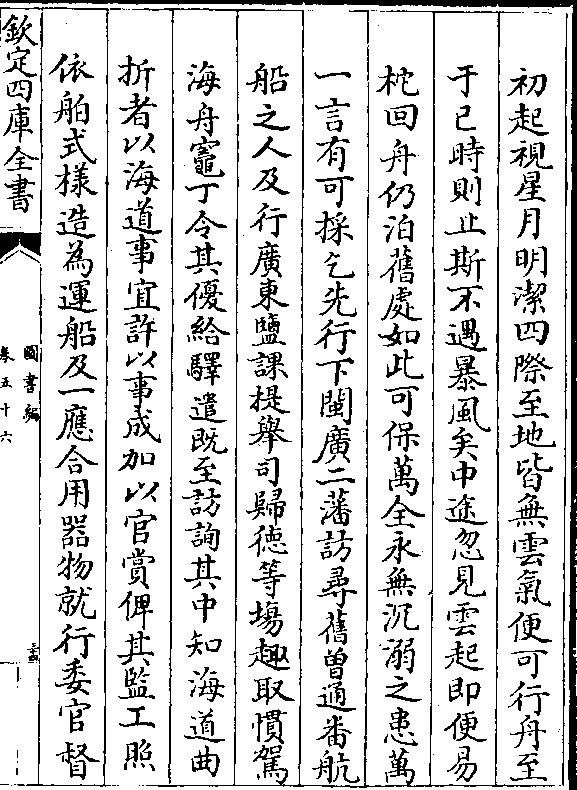 初起視星月明潔四際至地皆無雲氣便可行舟至
于巳時則止斯不遇暴風矣中途忽見雲起即便易
柁回舟仍泊舊處如此可保萬全永無沉溺之患萬
一言有可採乞先行下閩廣二藩訪尋舊曾通番航
船之人及行廣東鹽課提舉司歸德等塲趣取慣駕
海舟竈丁令其優給驛遣既至訪詢其中知海道曲
折者以海道事宜許以事成加以官賞俾其監工照
依舶式樣造為運船及一應合用器物就行委官督
欽定四庫全書
圖書編
卷五十六